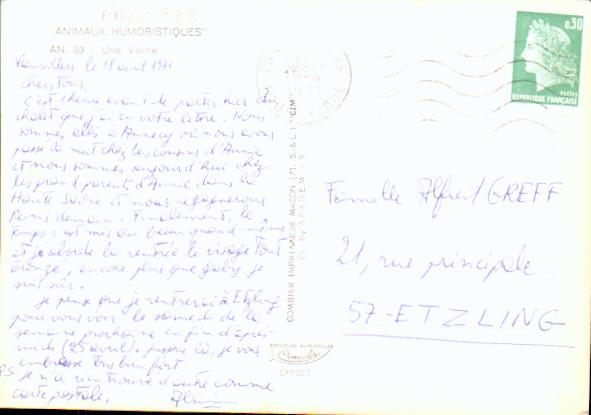 "ANIMAUX HUMORISTIQUES"
AN. 69 - Une Vache
le 18 avril 1971
Chers tous,
C'est 1 heure avant de partir hier du
chalet que j'ai eu votre lettre. Nous
sommes allés à Annecy où nous avons
passé la nuit chez les cousins d'Annie
et nous sommes aujourd'hui chez
les grands parents d'Annie dans la
Haute Saône et nous regagnerons
Reims demain. Finalement, le
temps s'est mis au beau quand même
et j'aborde la rentrée le visage tout
bronzé, encore plus que Gaby je
suis sûr.
Je pense que je rentrerai à Etzling
pour vous voir le samedi de la
semaine prochaine en fin d'après
midi (25 avril). Jusque là, je vous
embrasse tous bien fort.
PS je n'ai rien trouvé d'autre comme
carte postale. Alain
COMBIER IMPRIMEUR MACON (71, S.&L.) "CIM"
© by SPADEM - 9
Combier
OFFSET
0,30
POSTES
REPUBLIQUE FRANÇAISE
Famille Alfred GREFF
21, rue principale
57-ETZLING